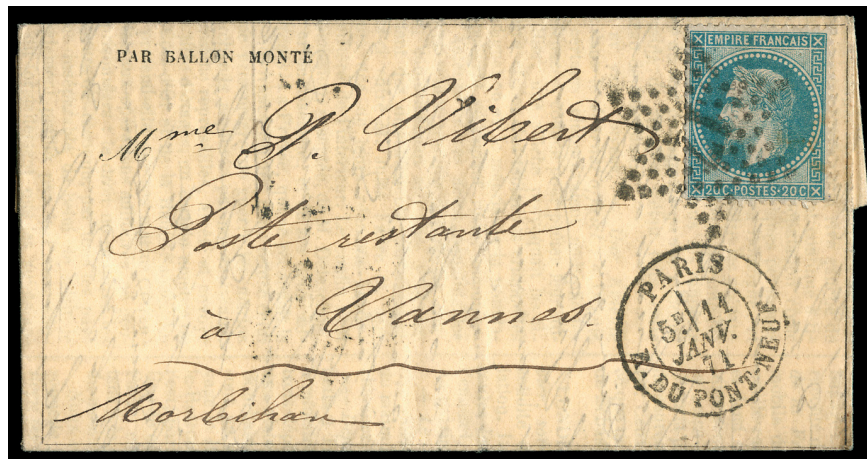 PAR BALLON MONTÉ
EMPIRE FRANÇAIS
20 C·POSTES·20 C
Mme P. Vibert
Poste restante
à Vannes.
Morbihan
PARIS
5E 11
JANV.
71
R. DU PONT-NEUF